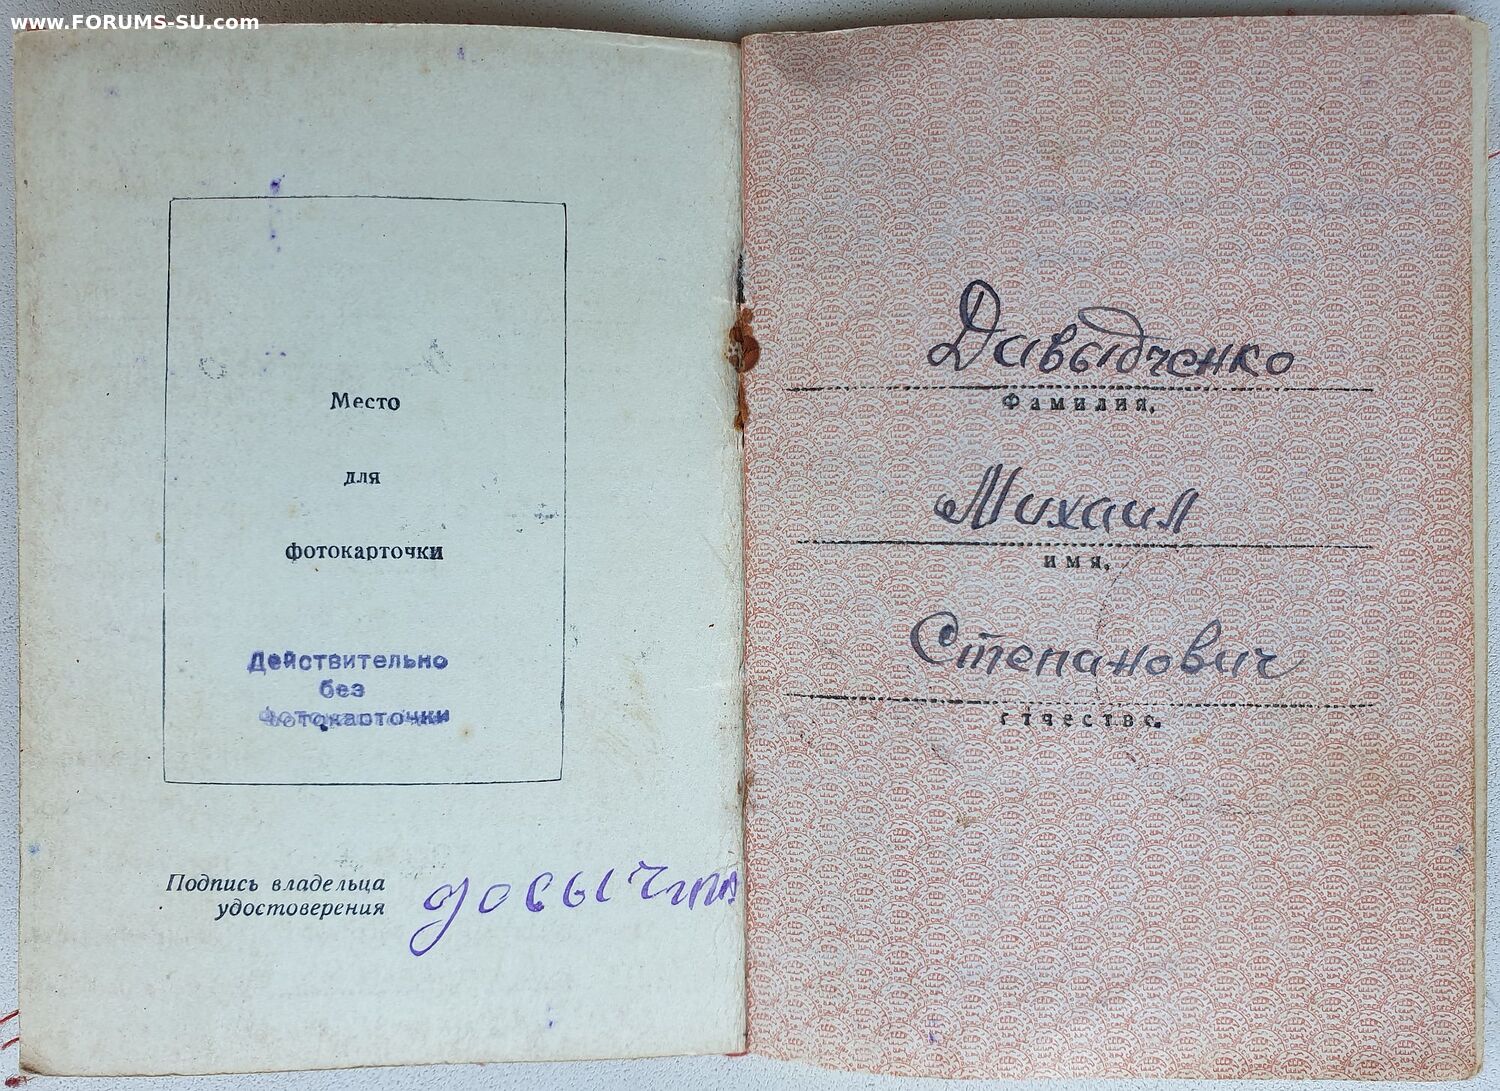 www.FORUMS-SU.com
Место
для
фотокарточки
Действительно
без
фотокарточки
Подпись владельца
удостоверения
Давыдченко
Фамилия,
Михаил
имя,
Степанович
отчество.